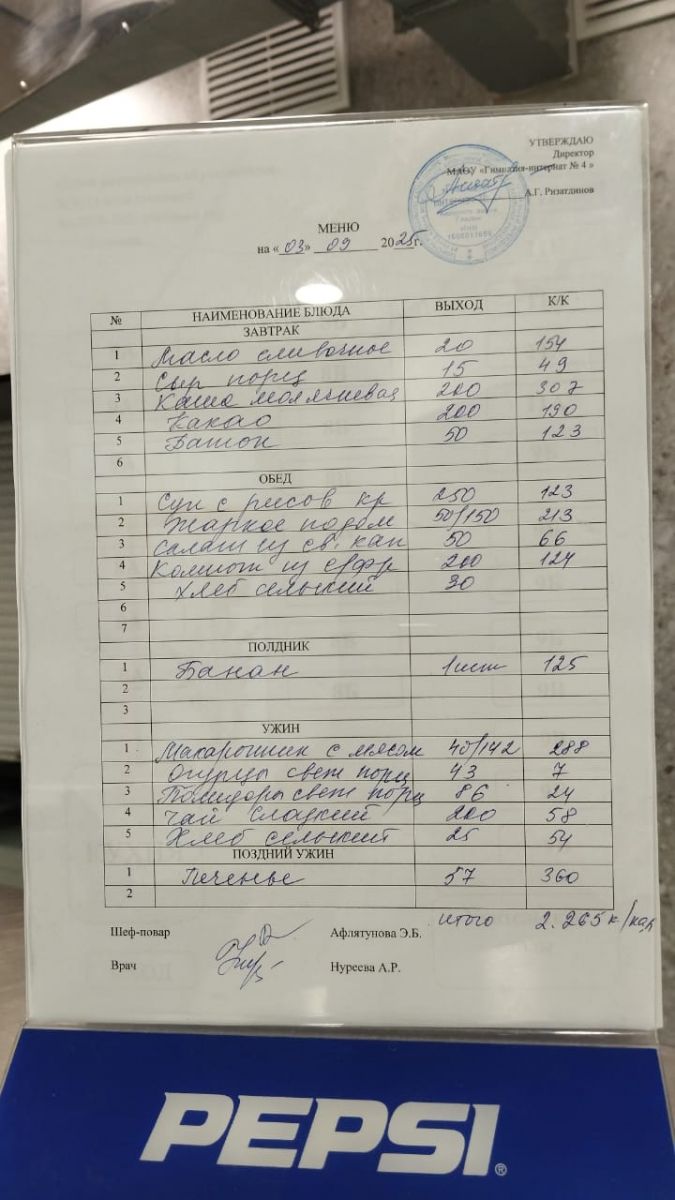 УТВЕРЖДАЮ
Директор
МАОУ «Гимназия-интернат № 4 »
А.Г. Ризатдинов
МЕНЮ
на «03» 09 2025г.
№ НАИМЕНОВАНИЕ БЛЮДА ВЫХОД К/К
ЗАВТРАК
1 Масло сливочное 20 154
2 Сыр порц 15 49
3 Каша молочневая 200 307
4 Какао 200 190
5 Батон 50 123
6
ОБЕД
1 Суп с рисов кр 250 123
2 Жаркое по дом 50/150 213
3 Салат из св. кап 50 66
4 Компот из с/фр 200 124
5 Хлеб сельский 30
6
7
ПОЛДНИК
1 Банан 1 шт 125
2
3
УЖИН
1 Макаронник с мясом 40/142 288
2 Огурцы свеж порц 43 7
3 Помидоры свеж порц 86 24
4 Чай сладкий 200 58
5 Хлеб сельский 25 54
ПОЗДНИЙ УЖИН
1 Печенье 57 360
2
итого 2.265 к/кал
Шеф-повар Афлятунова Э.Б.
Врач Нуреева А.Р.
PEPSI®